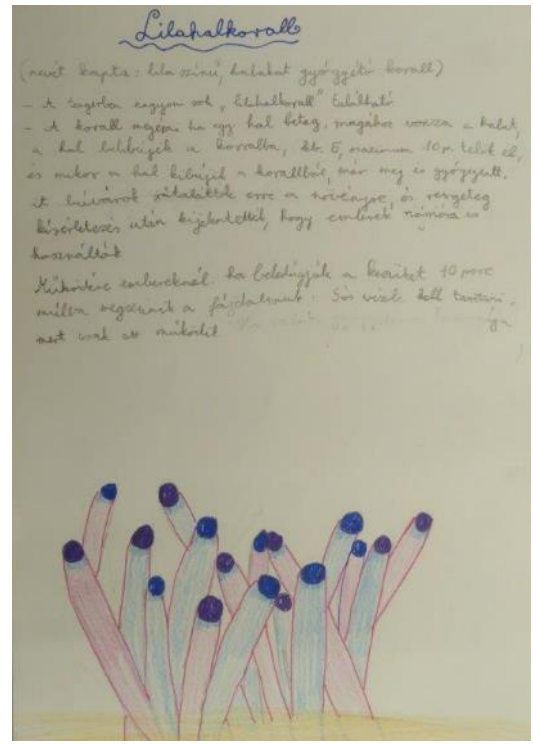 Lilahalkorall
(nevét kapta: lila színű, halakat gyógyító korall)
- A tengerben nagyon sok "lilahalkorall" található
- A korall megérzi ha egy hal beteg, magához vonzza a halat,
a hal belebújik a korallba, kb. 5, maximum 10 p. telik el,
és mikor a hal kibújik a korallból, már meg is gyógyult.
A búvárok rátaláltak erre a növényre, és rengeteg
kísérletezés után kijelentették, hogy emberek számára is
használták
Működése embereknél: ha beledugjuk a kezünket 10 perc
múlva megszűnik a fájdalmunk. Sós vízbe kell tartani,
mert csak ott működik